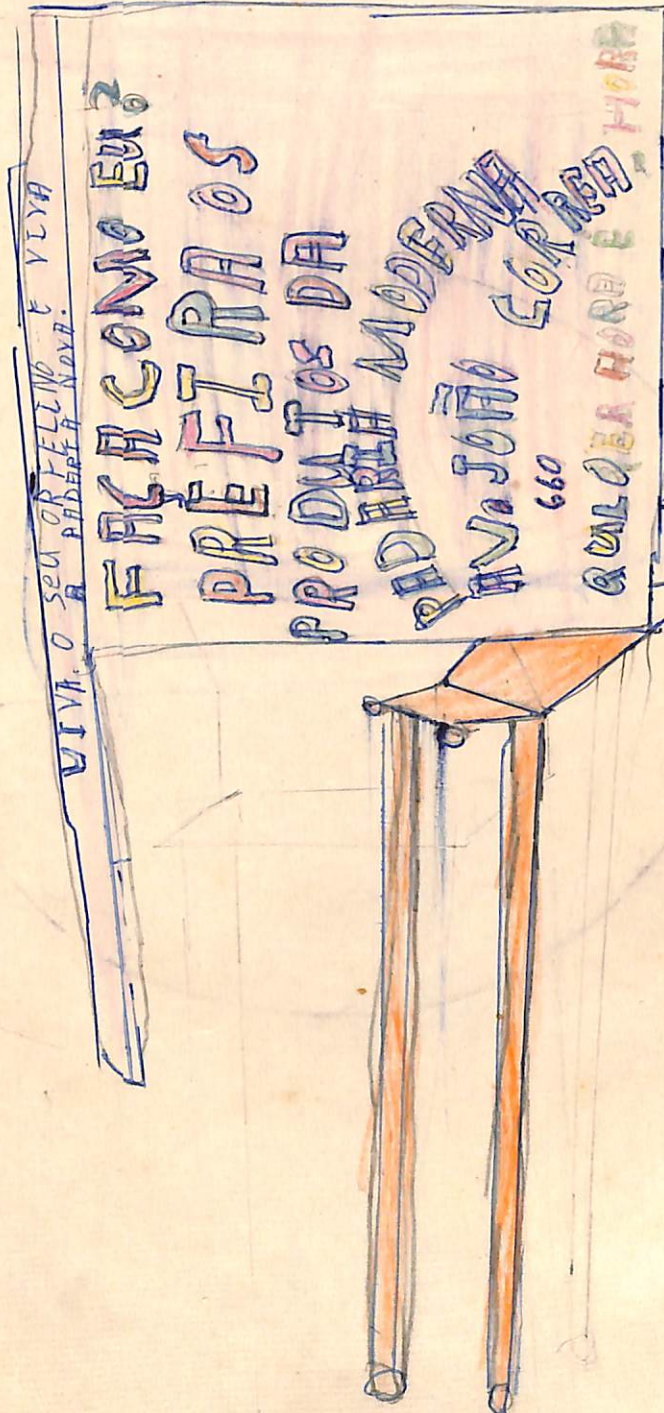 VIVA O SEU ORFELINO E VIVA
A PADARIA NOVA.
FAÇA COMO EU?
PREFIRA OS
PRODUTOS DA
PADARIA MODERNA
AV. JOÃO CORREA
660
QUALQER HORA É HORA